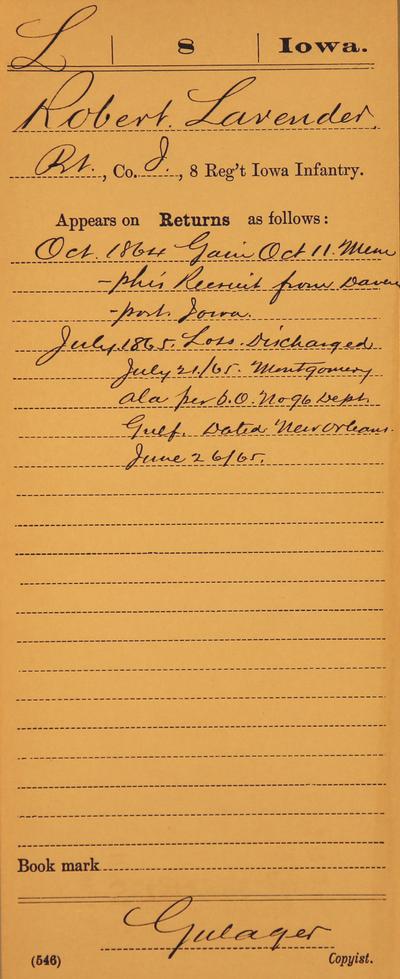 L | 8 | Iowa.
Robert Lavender,
Pvt., Co. I., 8 Reg't Iowa Infantry.
Appears on Returns as follows:
Oct. 1864 Gain Oct 11. Mem
-phis Recruit from Daven
-port Iowa.
July, 1865. Loss. Discharged
July 21/65. Montgomery
Ala per S.O. No 96 Dept.
Gulf. Dated New Orleans.
June 26/65.
Book mark
Gulager
(546) Copyist.